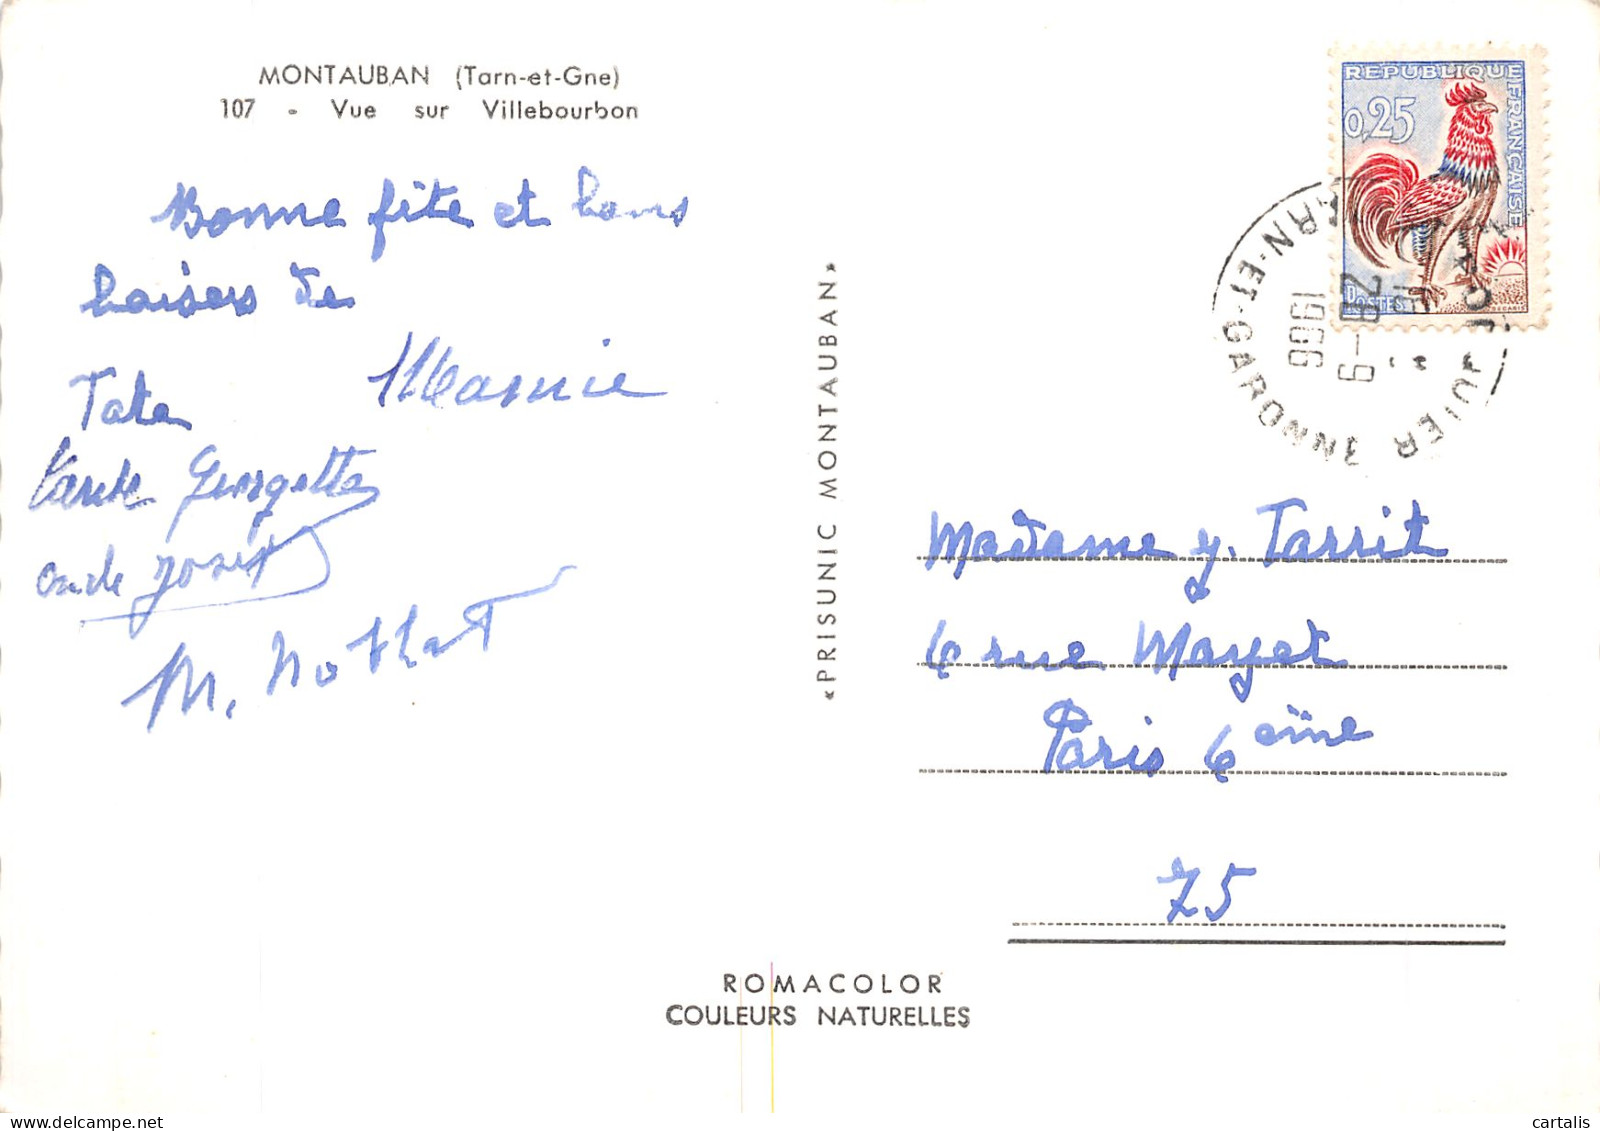 MONTAUBAN (Tarn-et-Gne)
107 - Vue sur Villebourbon
Bonne fête et bons
baisers de
Mamie
Tata
tante Georgette
oncle Josef
M. Nothat
«PRISUNIC MONTAUBAN»
REPUBLIQUE FRANÇAISE
0,25
POSTES
TARN-ET-GARONNE
28-9
1966
Madame y. Tarrit
6 rue Mayet
Paris 6ème
75
ROMACOLOR
COULEURS NATURELLES
cartalis